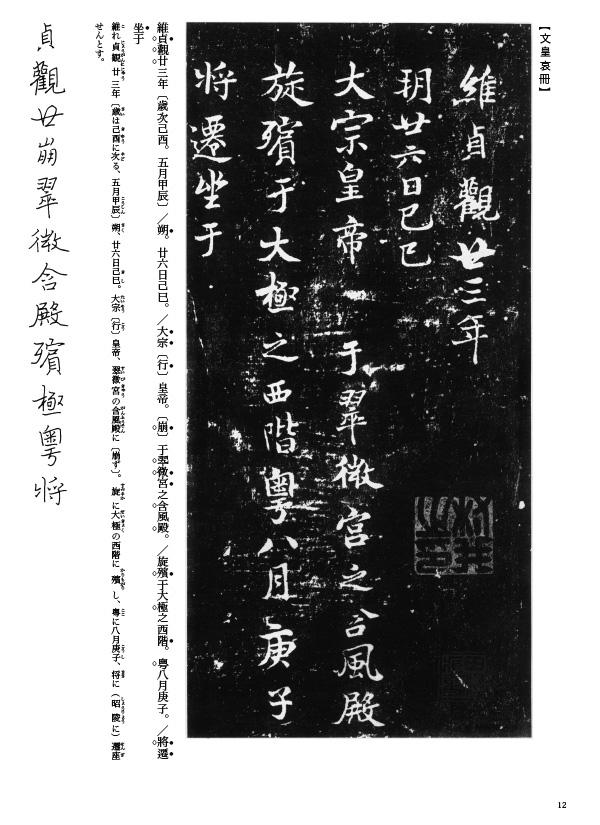 【文皇哀冊】
維貞觀廿三年
朔廿六日己巳
大宗皇帝 于翠微宮之含風殿
旋殯于大極之西階粤八月庚子
将遷坐于
維貞觀廿三年〔歳次己酉。五月甲辰〕／朔。廿六日己巳。／大宗〔行〕皇帝。〔崩〕于翠微宮之含風殿。／旋殯于大極之西階。粤八月庚子。／將遷
坐于
維れ貞觀廿三年〔歳は己酉に次る、五月甲辰〕朔、廿六日己巳。大宗〔行〕皇帝、翠微宮の含風殿に〔崩ず〕。旋に大極の西階に殯し、粤に八月庚子、将に（昭陵に）遷座
せんとす。
貞觀廿崩翠微含殿殯極粤将
12